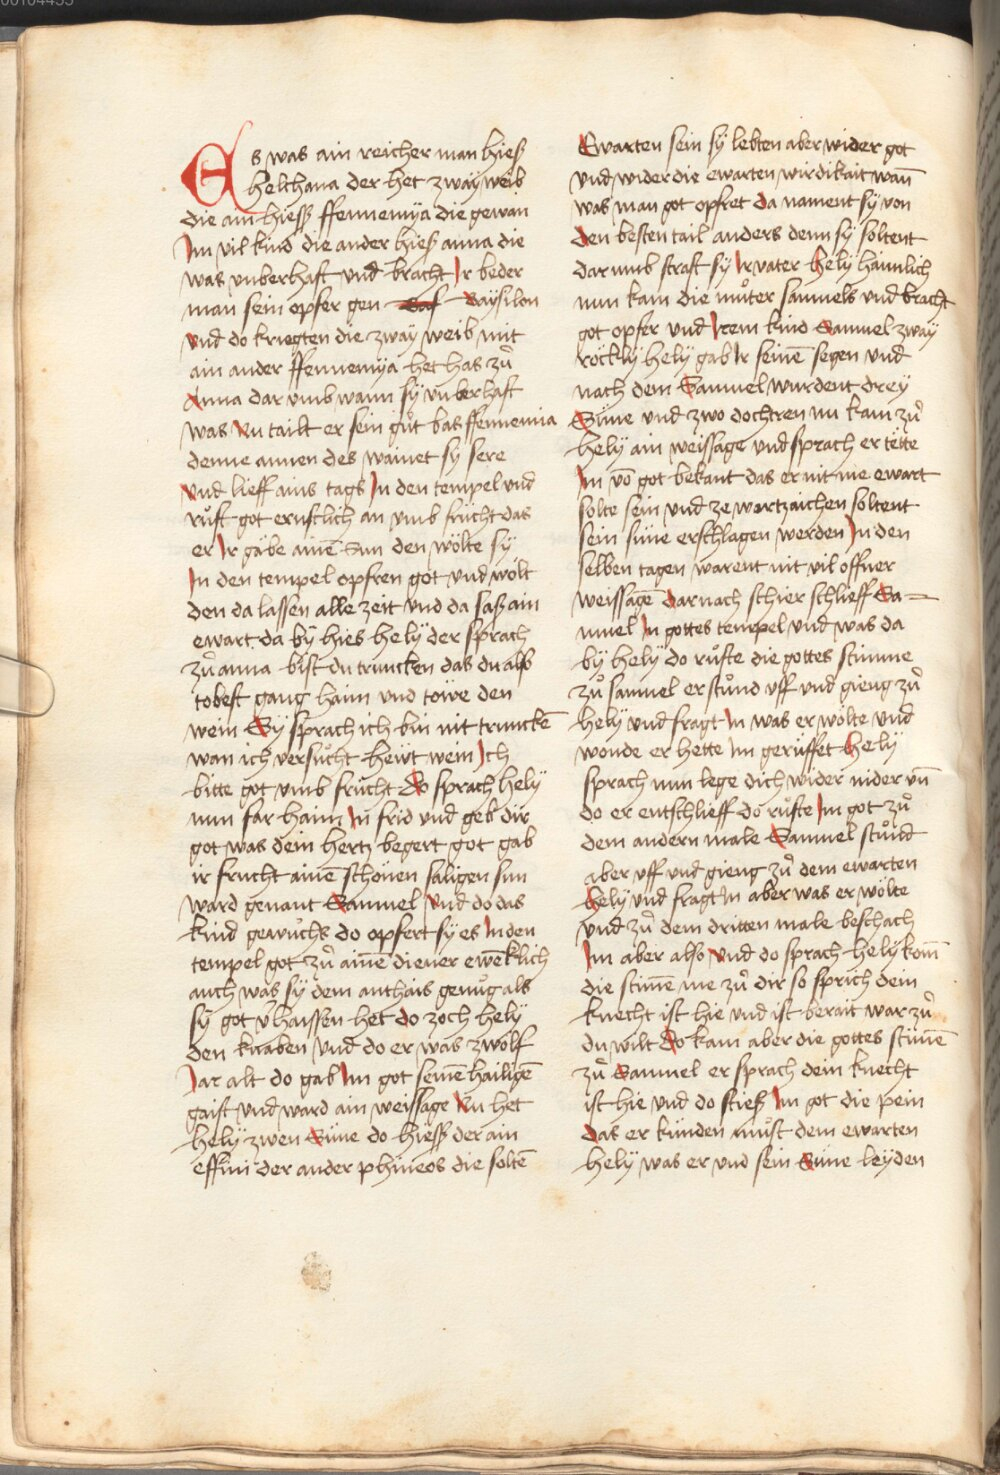 00104455
Es was ain reicher man hiesß
helchana der het zway weib
die ain hiesß ffennemÿa die gewan
Im vil kind die ander hiesß anna die
was vnberhaft vnd bracht Ir beder
man sein opfer gen Saÿsilon
vnd do kriegten die zwaÿ weib mit
ain ander ffennemÿa het has zuͦ
Anna dar vmb wann sÿ vnberhaft
was Nu tailt er sein guͦt bas ffennemia
denne annen des wainet sÿ sere
vnd lieff ains tags In den tempel vnd
ruͦft got ernstlich an vmb frücht das
er Ir gäbe ainē Sun den wölte sÿ
In den tempel opfren got vnd wölt
den da lassen alle zeit vnd da saß ain
ewart da bÿ hies helÿ der sprach
zuͦ anna bist du truncken das du also
tobest gang haim vnd töwe den
wein Sÿ sprach ich bin nit trunckē
wan ich versuͦcht hewt wein Ich
bitte got vmb frücht Do sprach helÿ
nun far haim In frid vnd geb dir
got was dein hertz begert got gab
ir frucht ainē schönen säligen sun
ward genant Samuel vnd do das
kind gewuͦchs do opfert sÿ es In den
tempel got zuͦ ainē diener ewēklich
auch was sÿ dem anthais genuͦg als
sÿ got v̄haissen het do zoch helÿ
den knaben vnd do er was zwölf
Jar alt do gab Im got seinē hailigē
gaist vnd ward ain weissage Nu het
helÿ zwen Süne do hiesß der ain
effini der ander phineos die soltē
Ewarten sein sÿ lebten aber wider got
vnd wider die ewarten wirdikait wan̄
was man got opfret da nament sÿ von
den besten tail anders denn sÿ soltent
dar vmb straft sÿ Ir vater helÿ haimlich
nun kam die muͦter samuels vnd bracht
got opfer vnd Irem kind Samuel zwaÿ
röcklÿ helÿ gab Ir seinē segen vnd
nach dem Samuel wurdent dreÿ
Süne vnd zwo dochtren nu kam zuͦ
helÿ ain weissage vnd sprach er tëtte
Im vō got bekant das er nit me ewart
solte sein vnd ze wortzaichen soltent
sein süne erschlagen werden In den
selben tagen warent nit vil offner
weissage dar nach schier schlieff Sa=
muel In gottes tempel vnd was da
bÿ helÿ do ruͦfte die gottes stimme
zuͦ samuel er stuͦnd vff vnd gieng zuͦ
helÿ vnd fragt In was er wölte vnd
wonde er hette Im gerüffet helÿ
sprach nun lege dich wider nider vn̄
do er entschlieff do ruͦfte Im got zuͦ
dem andern male Samuel stund
aber vff vnd gieng zuͦ dem ewarten
helÿ vnd fragt In aber was er wölte
vnd zuͦ dem dritten male beschach
Im aber also vnd do sprach helÿ kom̄
die stim̄e me zuͦ dir so sprich dein
knecht ist hie vnd ist berait war zuͦ
du wilt Do kam aber die gottes stim̄e
zuͦ Samuel er sprach dein knecht
ist hie vnd do stiesß Im got die pein
das er künden muͦst dem ewarten
helÿ was er vnd sein Süne leÿden